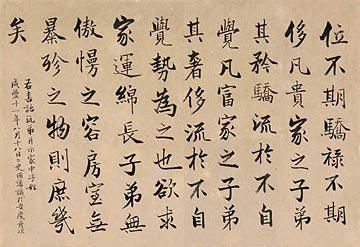 位不期驕祿不期
侈凡貴家之子弟
其矜驕流於不自
覺凡富家之子弟
其奢侈流於不自
覺勢為之也欲求
家運綿長子弟無
傲慢之容房室無
暴殄之物則庶幾
矣
右書詒沅弟并示家中子姪
咸豐十一年八月十八日國藩識於安慶舟次